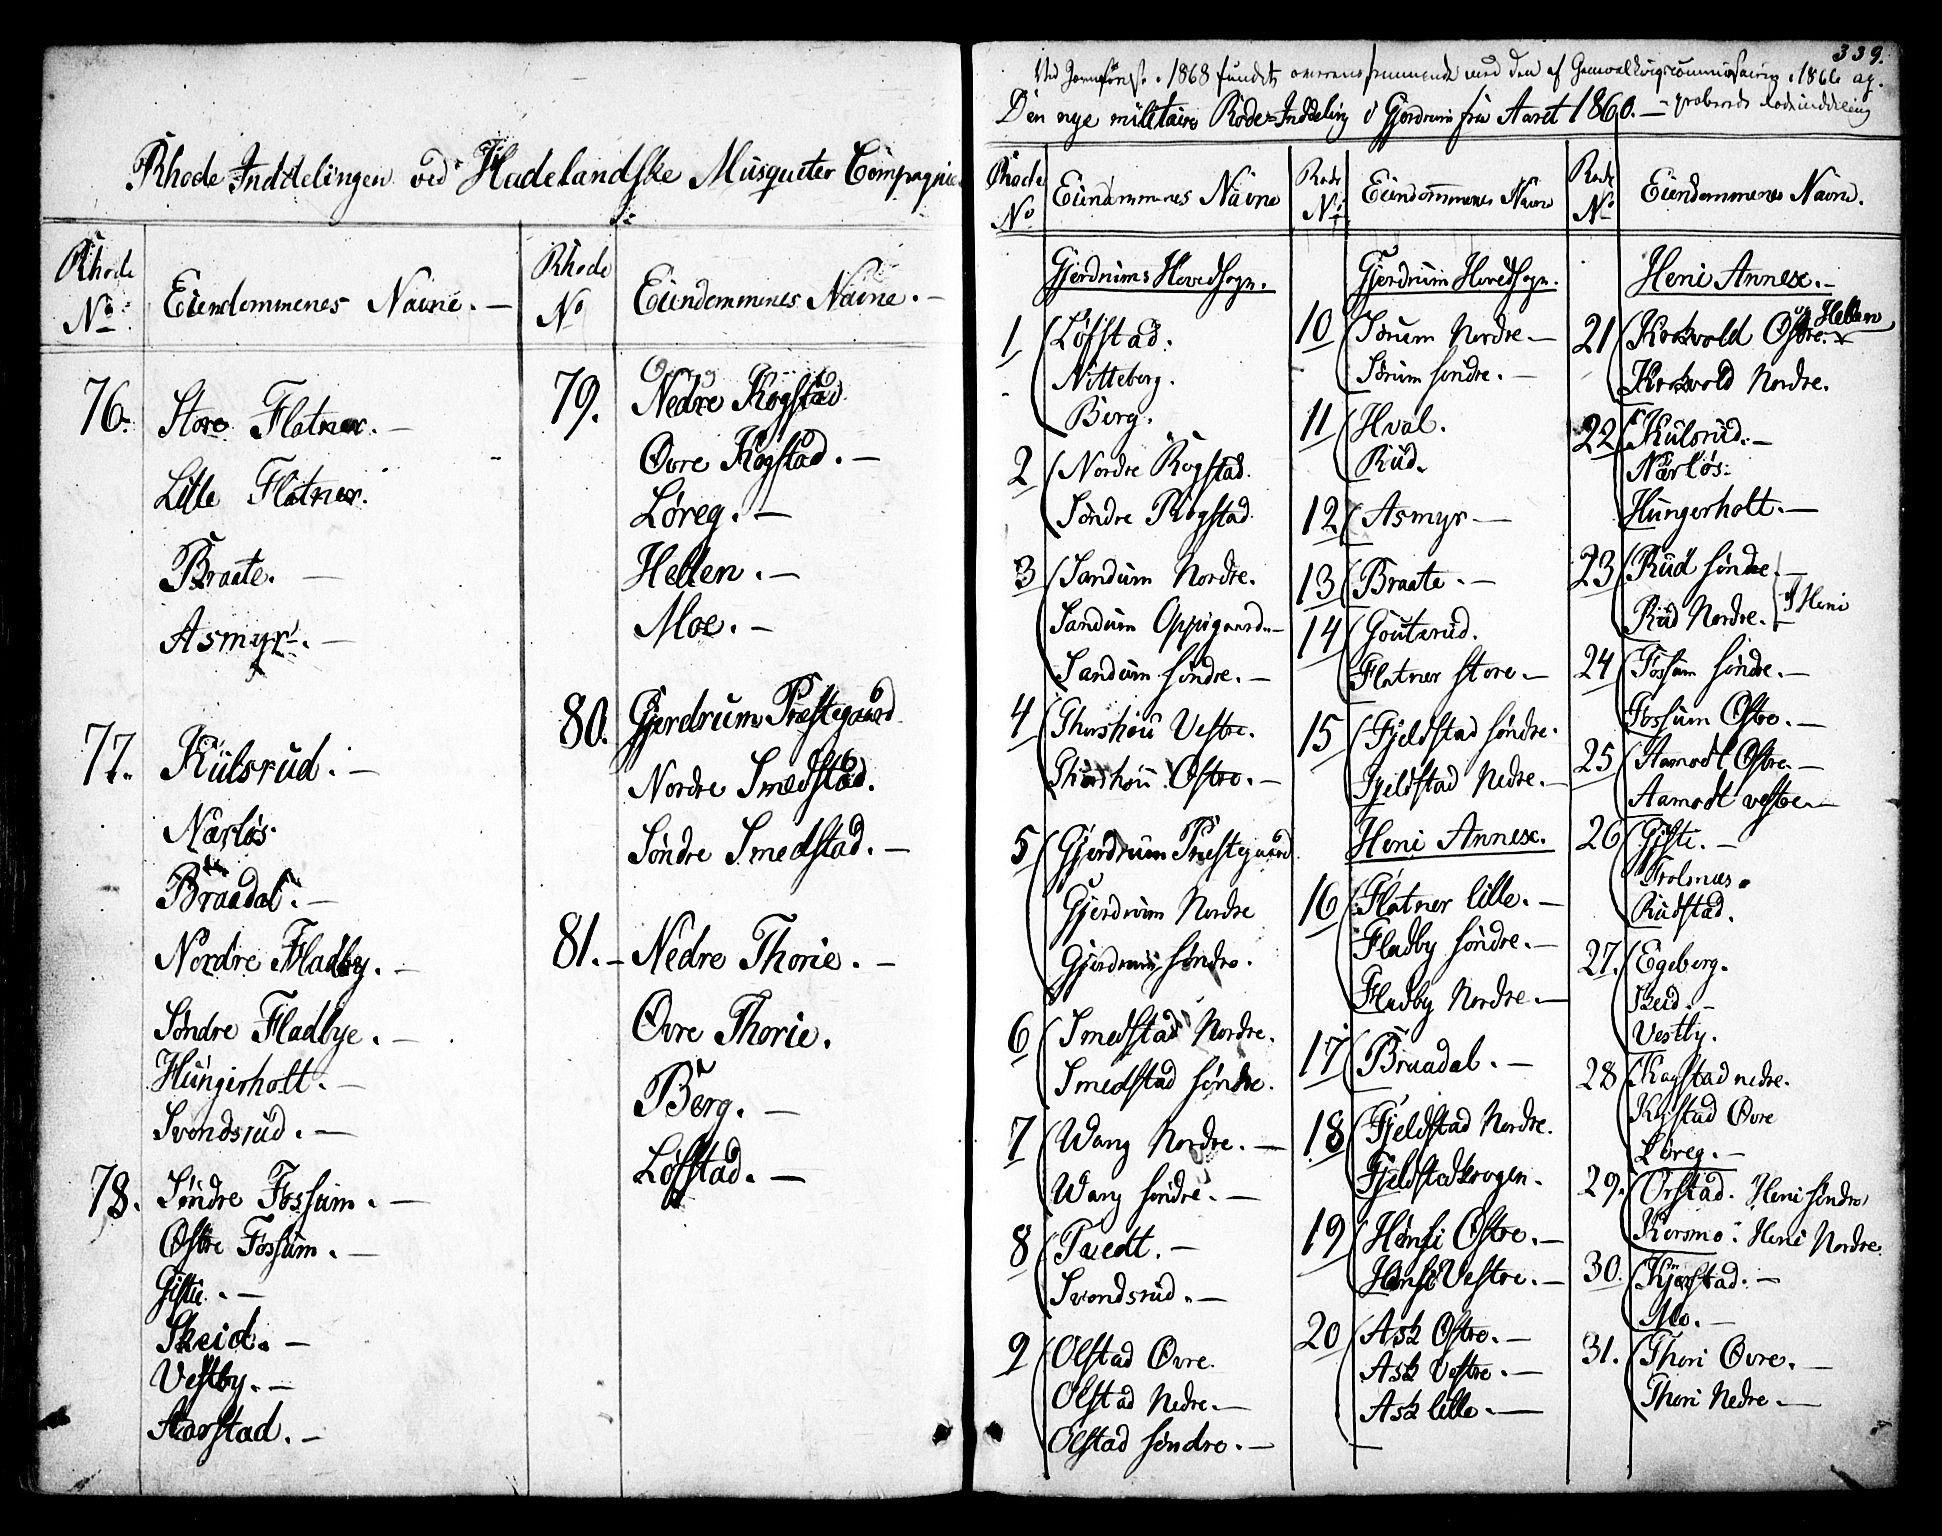 Rhode Inddelingen ved Hadelandske Musqueter Compagnie
Rhode No
Eiendommenes Navne. —
Rhode No
Eiendommenes Navne. —
76. Store Flatner. —
Lille Flatner.
Braate. —
Asmyr. —
77. Külsrud. —
Nærløs.
Braadal. —
Nordre Fladby. —
Søndre Fladbye. —
Hungerholt. —
Svendsrud. —
78. Søndre Fossum. —
Østre Fossum. —
Giste. —
Skeid. —
Vestby. —
Aarstad. —
79. Nedre Kogstad
Øvre Kogstad. —
Løreg. —
Hellen. —
Moe. —
80. Gjerdrum Præstegaard
Nordre Smedstad.
Søndre Smedstad. —
81. — Nedre Thorie. —
Øvre Thorie.
Berg. —
Løfstad. —
339.
Ved 1868 fundet overensstemmende med den af 1866 ap-
Den nye militaire Rode-Inddeling i Gjerdrum fra Aaret 1860. — -proberede Rodeinddeling
Rhode No
Eiendommenes Navne
Rode No
Eiendommenes Navne
Rode No
Eiendommenes Navne.
Gjerdrums Hovedsogn.
1 Løfstad.
Nitteberg.
Berg.
2 Nordre Rogstad.
Søndre Rogstad
3 Sandum Nordre.
Sandum Oppigaarden
Sandum søndre. —
4 Thorshou Vestre.
Thorshou Østre. —
5 Gjerdrum Præstegaard
Gjerdrum Nordre
Gjerdrum søndre.
6 Smedstad Nordre.
Smedstad søndre.
7 Wang Nordre. —
Wang søndre. —
8 Tvedt. —
Svendsrud. —
9 Olstad Øvre.
Olstad Nedre. —
Olstad søndre. —
Gjerdrum Hovedsogn.
10 Sørum Nordre —
Sørum søndre. —
11 Hval.
Rud.
12 Asmyr —
13 Braate. —
14 Goutsrud.
Flatner store —
15 Fjeldstad søndre.
Fjeldstad Nedre. —
Heni Annex.
16 Flatner lille. —
Fladby søndre. —
Fladby Nordre. —
17 Braadal. —
18 Fjeldstad Nordre.
Fjeldstadkrogen.
19 Hønsi Østre. —
Hønsi Vestre. —
20 Ask Østre. —
Ask Vestre. —
Ask lille. —
Heni Annex. —
21 Krokvold Østre. og Hellen
Krokvold Nordre.
22 Kulsrud. —
Nærløs.
Hungerholt. —
23 Rud søndre. —
Rud Nordre. — } Heni
24 Fossum søndre. —
Fossum Østre. —
25 Aamodt Østre —
Aamodt vestre —
26 Giste. —
Frolsnæs.
Rudstad.
27. Egeberg.
Skeid. —
Vestby.
28 Kogstad nedre.
Kogstad Øvre
Løreg. —
29. Ørstad. Heni søndre
Korsmo. Heni Nordre.
30. Kjærstad. —
Mo. —
31. Thori Øvre. —
Thori Nedre —